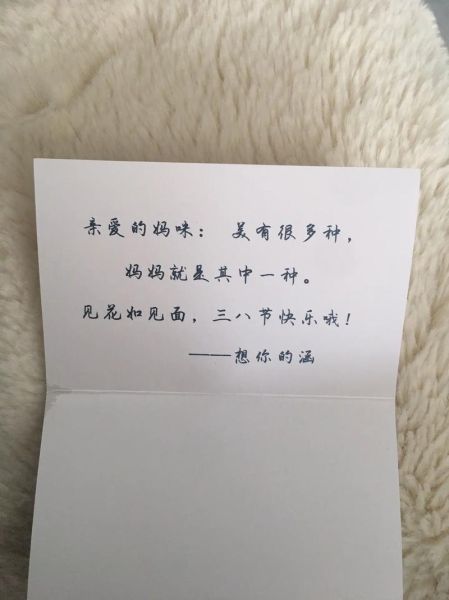 亲爱的妈咪： 美有很多种，
妈妈就是其中一种。
见花如见面，三八节快乐哦！
——想你的涵